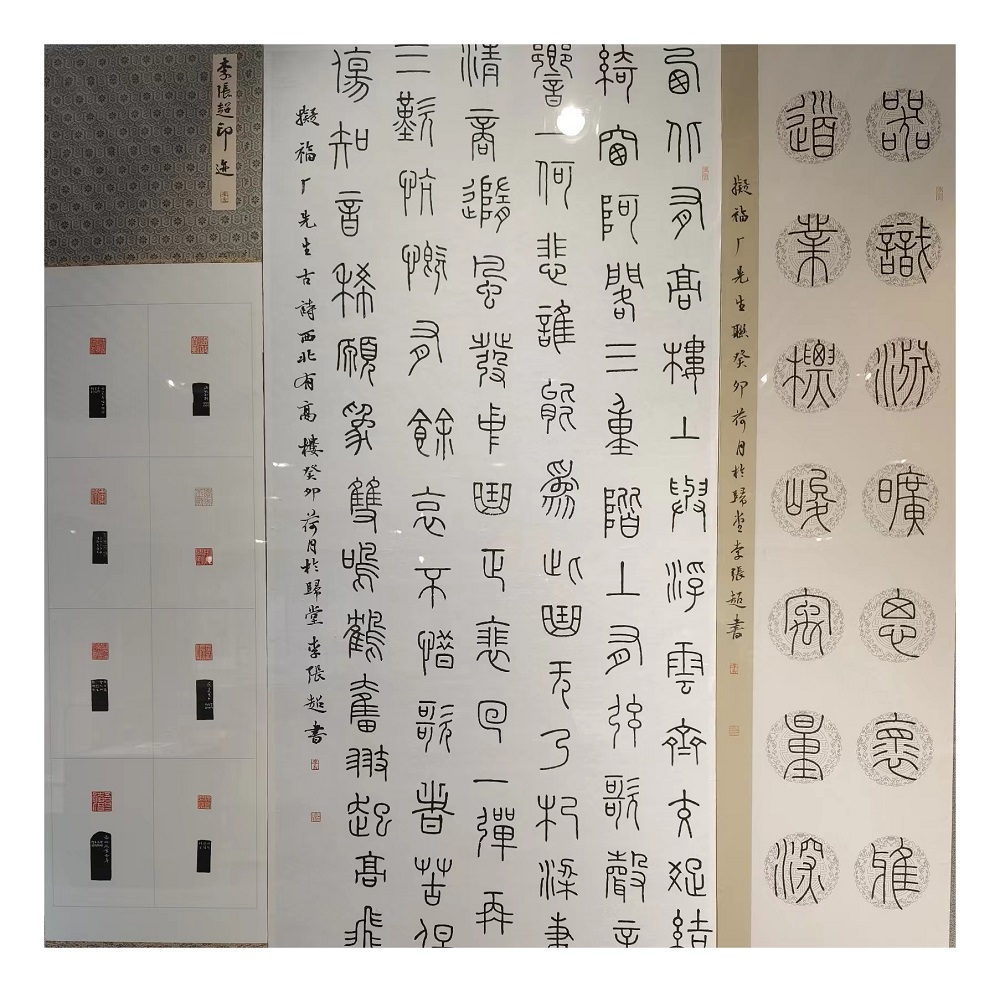 器識曠思雅
道業標峻寓量深
擬福厂先生聯癸卯荷月於歸堂李張超書
西北有高樓上與浮雲齊交疏結
綺窗阿閣三重階上有弦歌聲音
響一何悲誰能為此曲无乃杞梁妻
清商隨風發中曲正裴回一彈再
三歎忼慨有餘哀不惜歌者苦但
傷知音稀願為雙鳴鶴奮翅起高飛
擬福厂先生古詩西北有高樓癸卯荷月於歸堂李張超書
李張超印迹